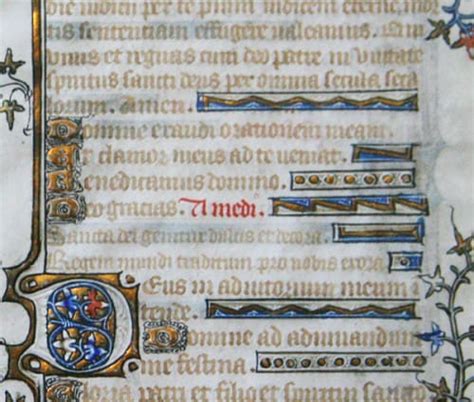 die indicii per te pium indicem eterne, mor
tis sentenciam effugere valeamus. Qui
vivis et regnas cum deo patre in unitate
spiritus sancti deus per omnia secula secu
lorum. Amen.
Domine exaudi orationem meam.
Et clamor meus ad te veniat.
Benedicamus domino.
Deo gracias. A medi.
Sancta dei genitrix dulcis et decora.
Regem mundi traditum pro nobis exora.
Deus in adiutorium meum i
tende.
Domine ad adiuvandum
me festina.
Gloria patri et filio et spiritui sancto